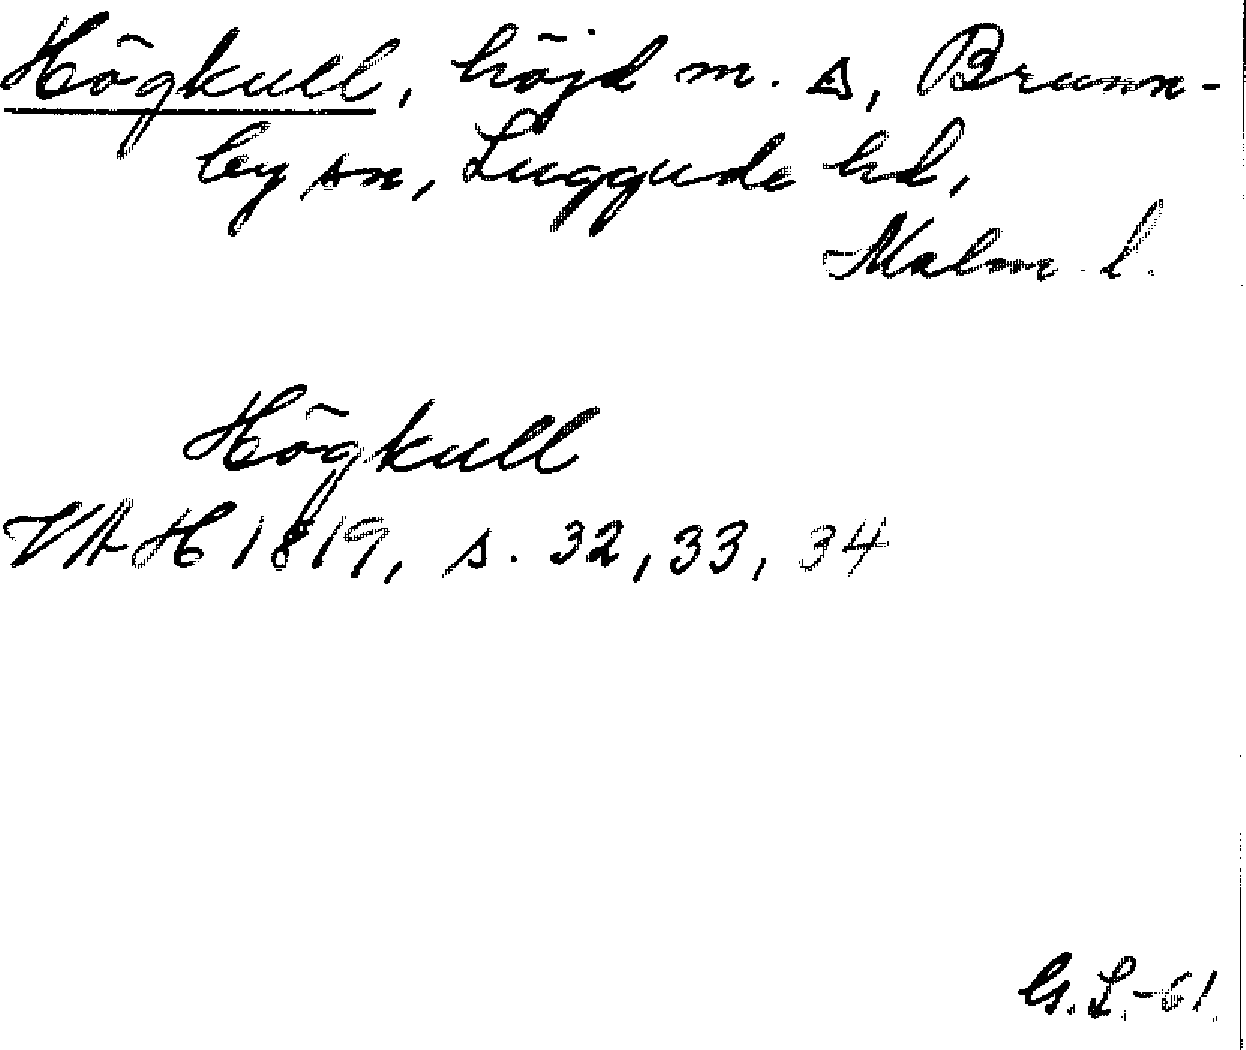 Högkull, höjd m. s, Brunn-
by sn, Luggude hd,
Malm. l.
Högkull
VAH 1819, s. 32, 33, 34
G. L. -61.